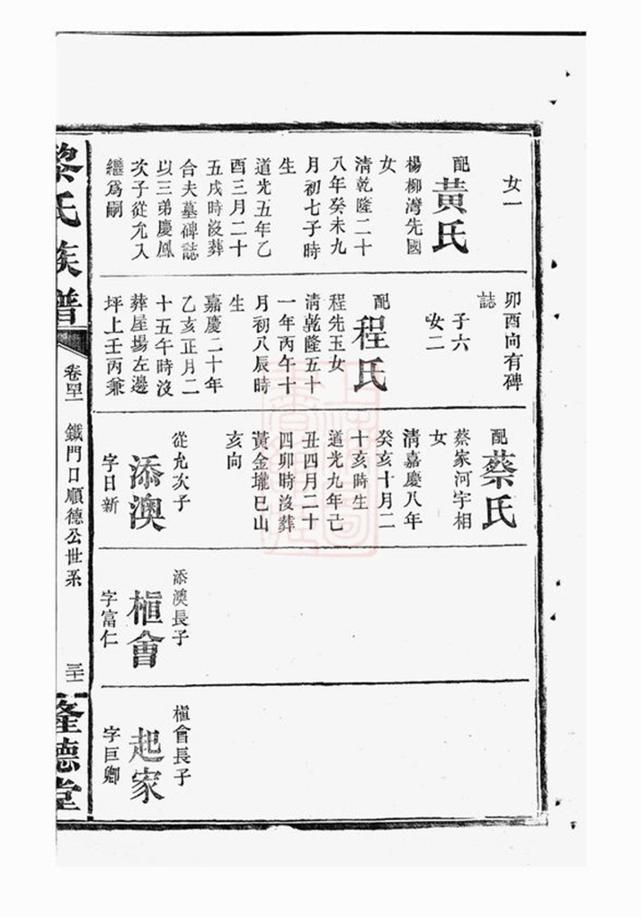 女一
配
黃氏
楊柳灣先國
女
清乾隆二十
八年癸未九
月初七子時
生
道光五年乙
酉三月二十
五戌時沒葬
合夫墓碑誌
以三弟慶鳳
次子從允入
繼爲嗣
卯酉向有碑
誌
子六
女二
配
程氏
程先玉女
清乾隆五十
一年丙午十
月初八辰時
生
嘉慶二十年
乙亥正月二
十五午時沒
葬屋場左邊
坪上壬丙兼
配
蔡氏
蔡家河字相
女
清嘉慶八年
癸亥十月二
十亥時生
道光九年己
丑四月二十
四卯時沒葬
黃金壠巳山
亥向
從允次子
添澳
字日新
添澳長子
楦會
字富仁
楦會長子
起家
字巨卿
黎氏族譜
卷
鐵門口順德公世系
隆德堂